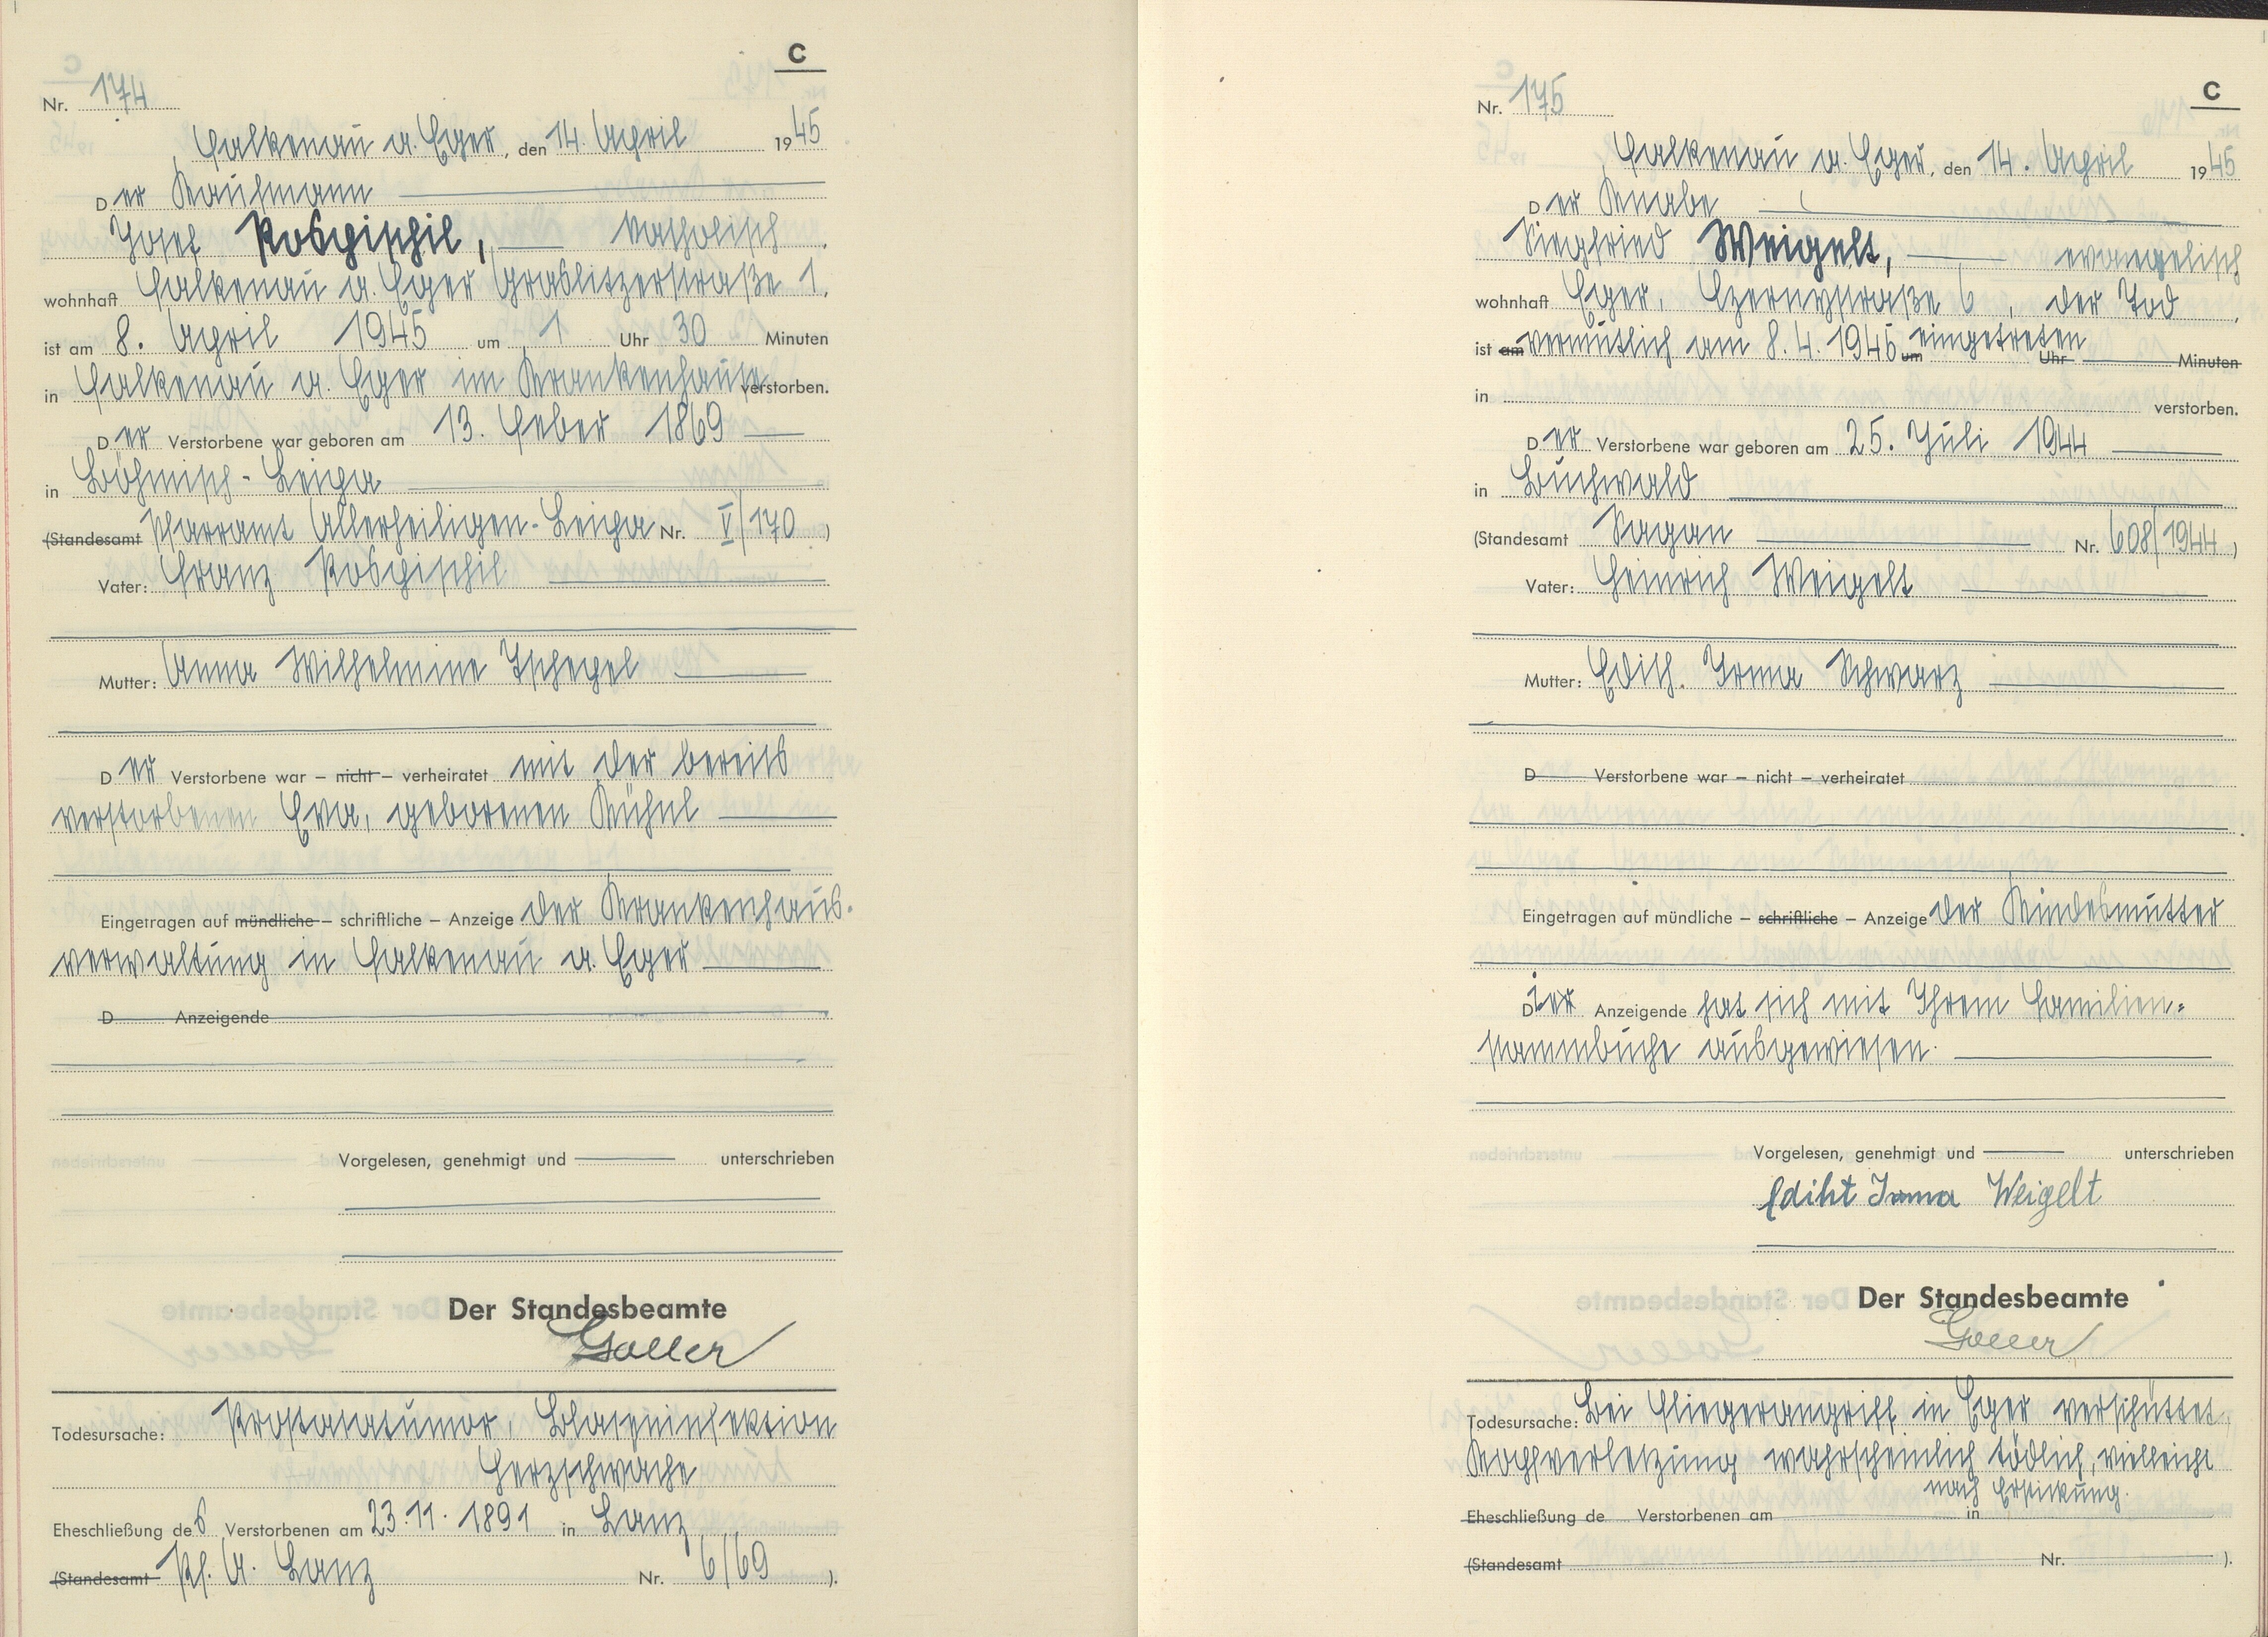 C
Nr. 174
Falkenau a. Eger, den 14. April 1945
Der Kaufmann
Josef Pospischil, katholisch
wohnhaft Falkenau a. Eger Graslitzerstraße 1,
ist am 8. April 1945 um 1 Uhr 30 Minuten
in Falkenau a. Eger im Krankenhause verstorben.
Der Verstorbene war geboren am 13. Feber 1869
in Böhmisch-Leipa
(Standesamt Pfarramt Allerheiligen-Leipa Nr. V/170)
Vater: Franz Pospischil
Mutter: Anna Wilhelmine Tschepel
Der Verstorbene war – nicht – verheiratet mit der bereits
verstorbenen Eva, geborenen Kühnl
Eingetragen auf mündliche – schriftliche – Anzeige der Krankenhaus-
verwaltung in Falkenau a. Eger
D Anzeigende
Vorgelesen, genehmigt und unterschrieben
Der Standesbeamte
Goller
Todesursache: Prostatatumor, Blaseninfektion
Herzschwäche
Eheschließung des Verstorbenen am 23.11.1891 in Lanz
(Standesamt Pf. A. Lanz Nr. 6/69).
C
Nr. 175
Falkenau a. Eger, den 14. April 1945
Der Knabe
Siegfried Weigelt, evangelisch
wohnhaft Eger, Czernystraße 6, der Tod
ist am vermutlich am 8.4.1945 um eingetreten Uhr Minuten
in verstorben.
Der Verstorbene war geboren am 25. Juli 1944
in Buchwald
(Standesamt Sagan Nr. 608/1944)
Vater: Heinrich Weigelt
Mutter: Edith. Irma Schwarz
D Verstorbene war – nicht – verheiratet
Eingetragen auf mündliche – schriftliche – Anzeige der Kindesmutter
Die Anzeigende hat sich mit Ihrem Familien-
stammbuche ausgewiesen.
Vorgelesen, genehmigt und unterschrieben
Ediht Irma Weigelt
Der Standesbeamte
Goller
Todesursache: Bei Fliegerangriff in Eger verschüttet,
Kopfverletzung wahrscheinlich tödlich, vielleicht
nach Erstickung.
Eheschließung de Verstorbenen am in
(Standesamt Nr. ).